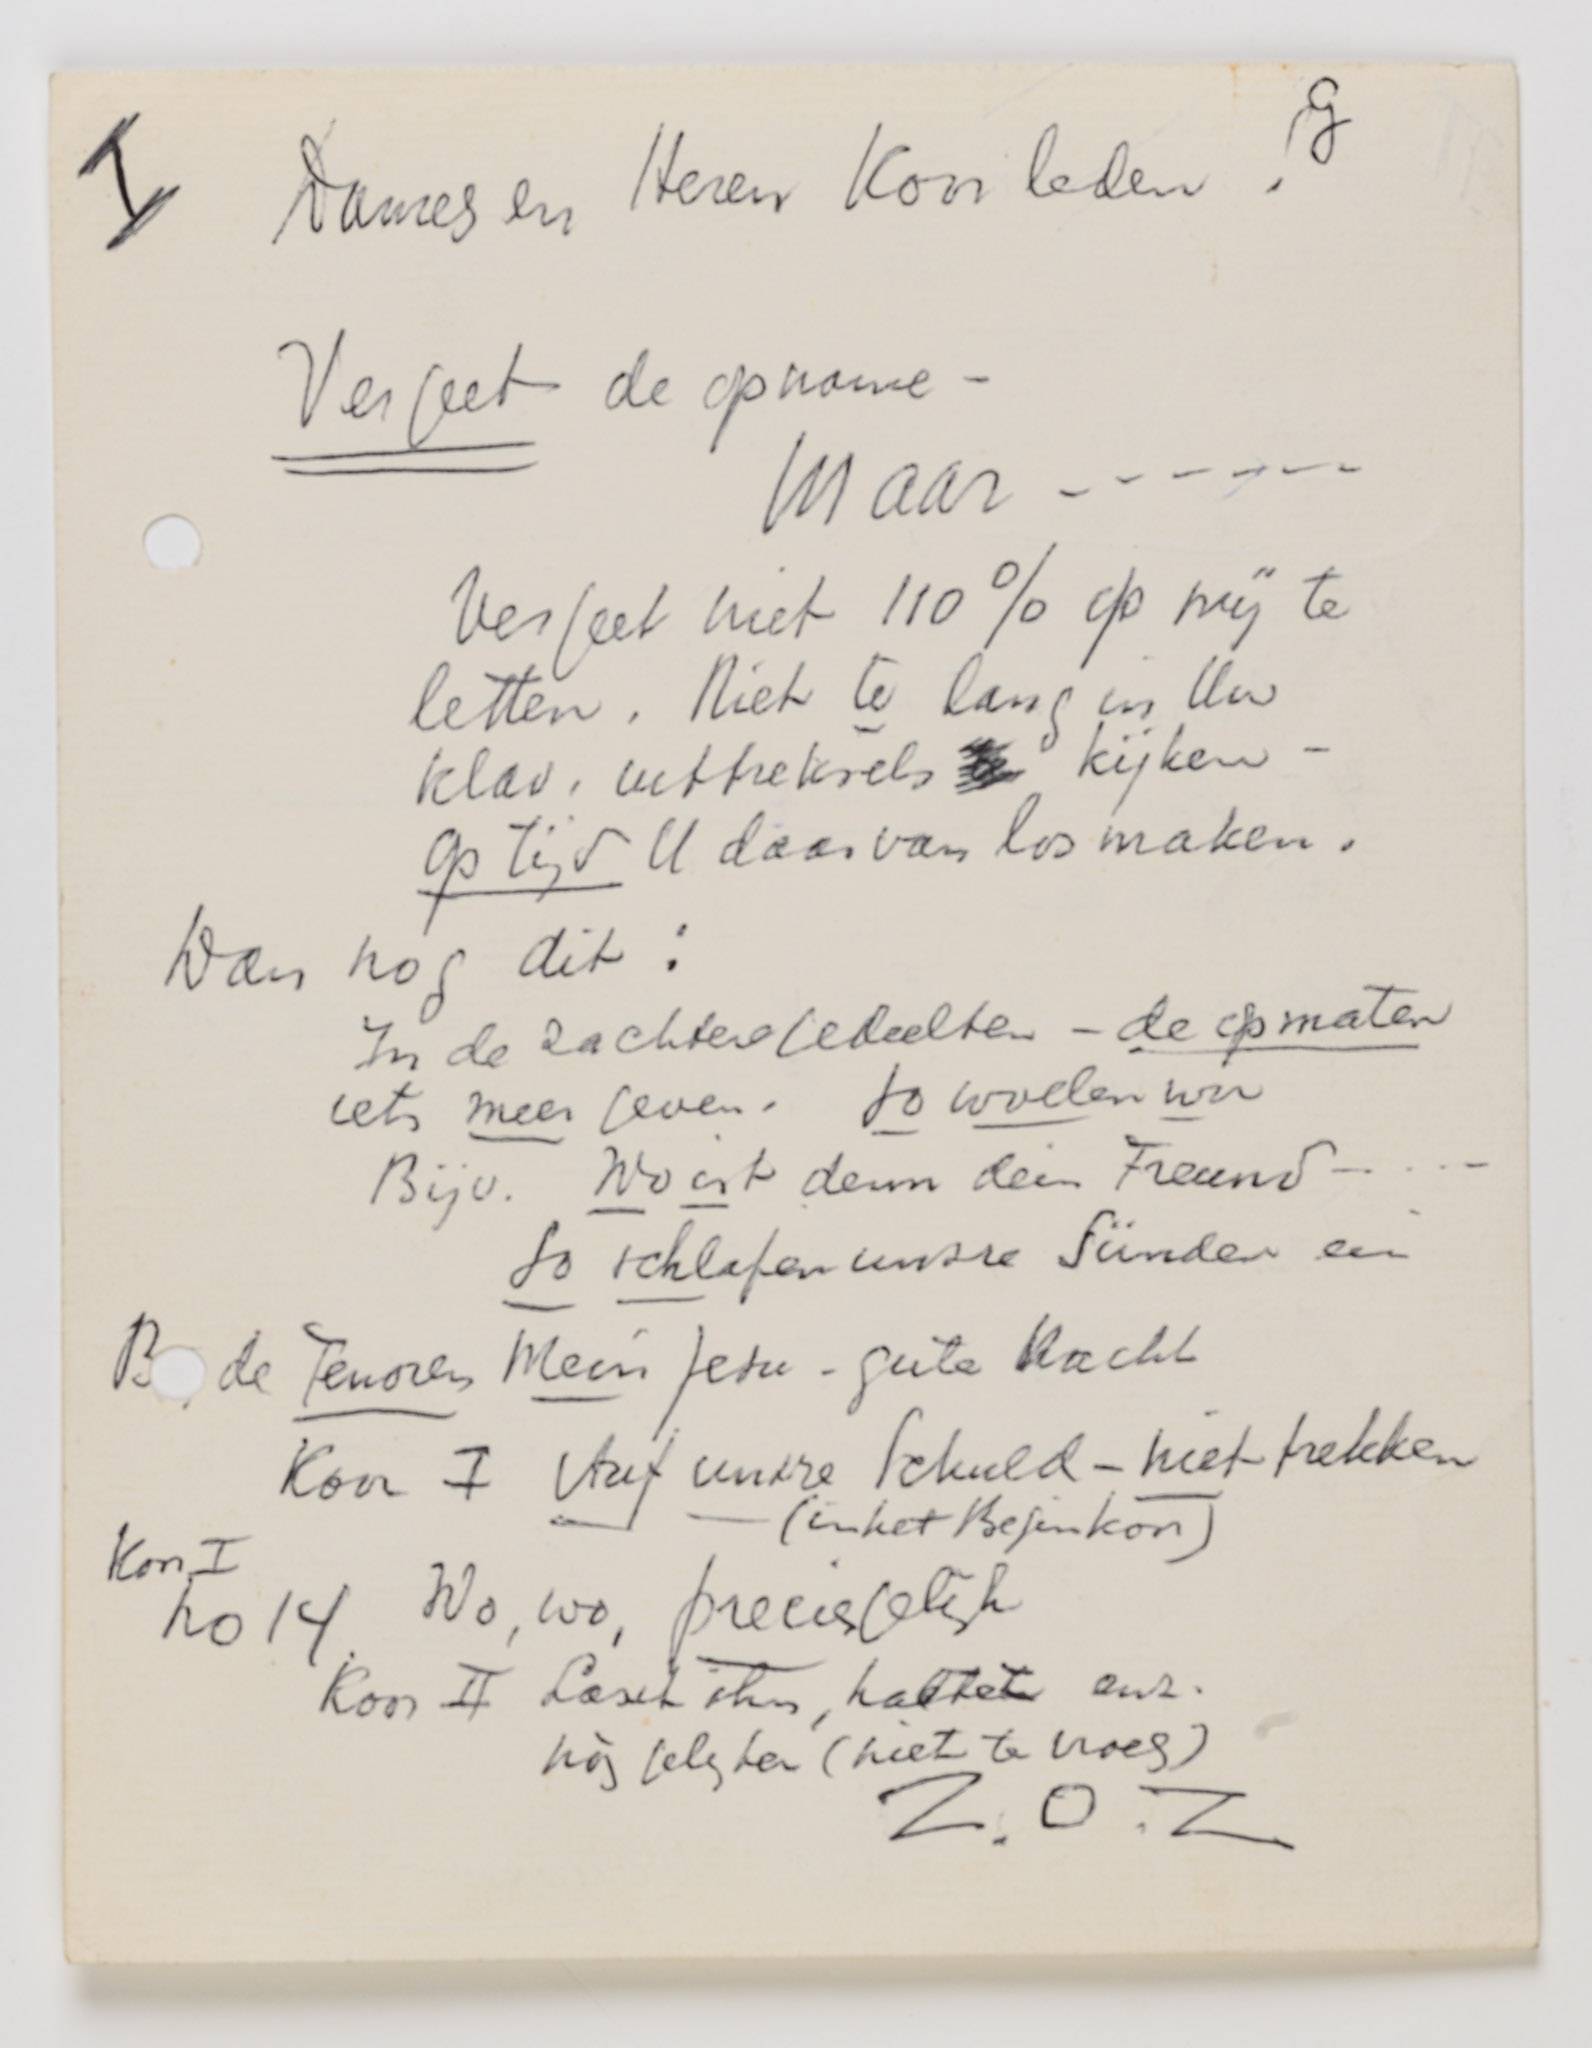 I Dames en Heren Koorleden! g
Vergeet de opname -
Maar ------
Vergeet niet 110% op mij te
letten. Niet te lang in Uw
klav. uittreksels kijken -
op tijd U daarvan losmaken.
Dan nog dit:
In de zachtere gedeelten - de opmaten
iets meer geven. So wollen wir
Bijv. Wo ist denn dein Freund - ...-
So schlafen unsre Sünden ein
B de Tenoren Mein Jesu - gute Nacht
Koor I Auf unsre Schuld - niet trekken
(in het Beginkoor)
Koor I
no 14. Wo, wo, precies gelijk
Koor II Lasst ihn, haltet ein.
nòg gelijker (niet te vroeg)
Z.O.Z.